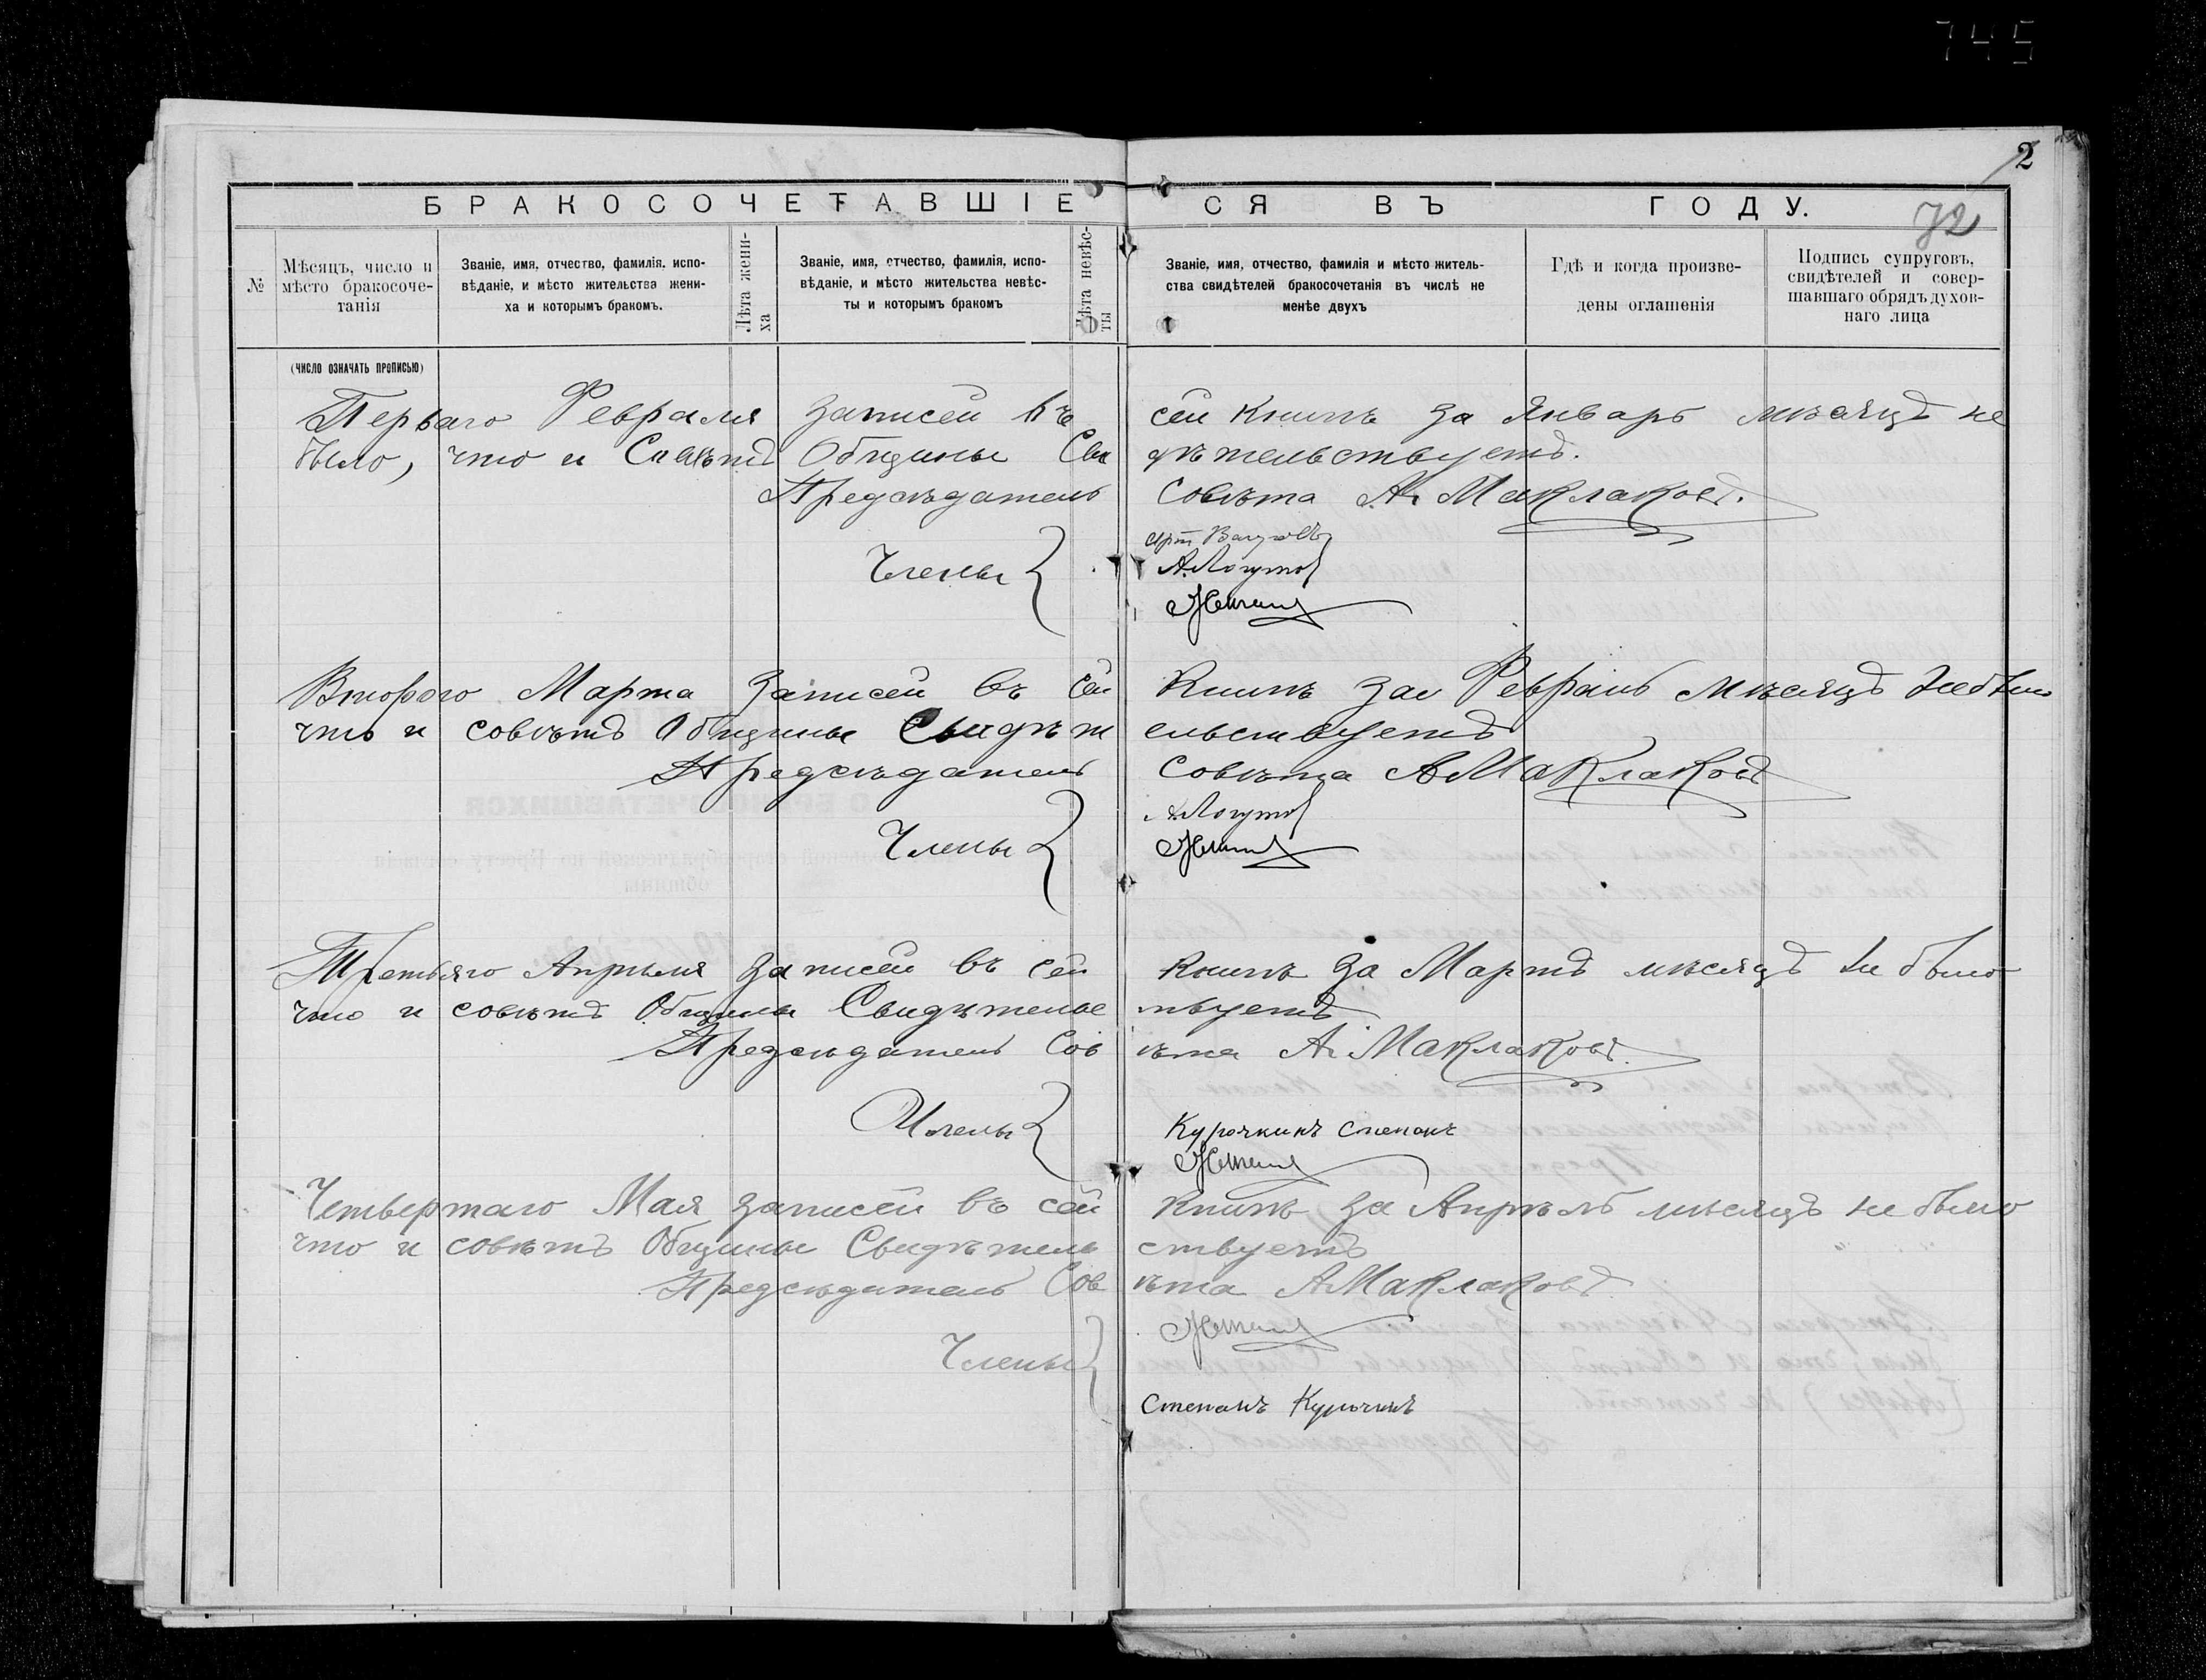 745
2
БРАКОСОЧЕТАВШІЕСЯ ВЪ ГОДУ.
72
№
Мѣсяцъ, число и
мѣсто бракосоче-
танія
Званіе, имя, отчество, фамилія, испо-
вѣданіе, и мѣсто жительства жени-
ха и которымъ бракомъ.
Лѣта жени-
ха
Званіе, имя, отчество, фамилія, испо-
вѣданіе, и мѣсто жительства невѣс-
ты и которымъ бракомъ
Лѣта невѣс-
ты
Званіе, имя, отчество, фамилія и мѣсто житель-
ства свидѣтелей бракосочетанія въ числѣ не
менѣе двухъ
Гдѣ и когда произве-
дены оглашенія
Подпись супруговъ,
свидѣтелей и совер-
шавшаго обрядъ духов-
наго лица
(ЧИСЛО ОЗНАЧАТЬ ПРОПИСЬЮ)
Перваго Февраля записей въ сей Книгѣ за Январь мѣсяцъ не
было, что и Совѣтъ Общины Свидѣтельствуетъ.
Предсѣдатель Совѣта А. Маклаковъ.
Члены
А. Логутов
Второго Марта записей въ сей Книгѣ за Февраль мѣсяцъ не было
что и совѣтъ Общины Свидѣтельствуетъ
Предсѣдатель Совѣта А Маклаковъ
Члены
А. Логутов
Третьяго Апрѣля записей въ сей Книгѣ за Мартъ мѣсяцъ не было
что и совѣтъ Общины Свидѣтельствуетъ
Предсѣдатель Совѣта А. Маклаковъ.
Члены
Курочкинъ Степанъ
Четвертаго Мая записей въ сей Книгѣ за Апрѣль мѣсяцъ не было
что и совѣтъ Общины Свидѣтельствуетъ
Предсѣдатель Совѣта А Маклаковъ
Члены
Степанъ Курочкинъ